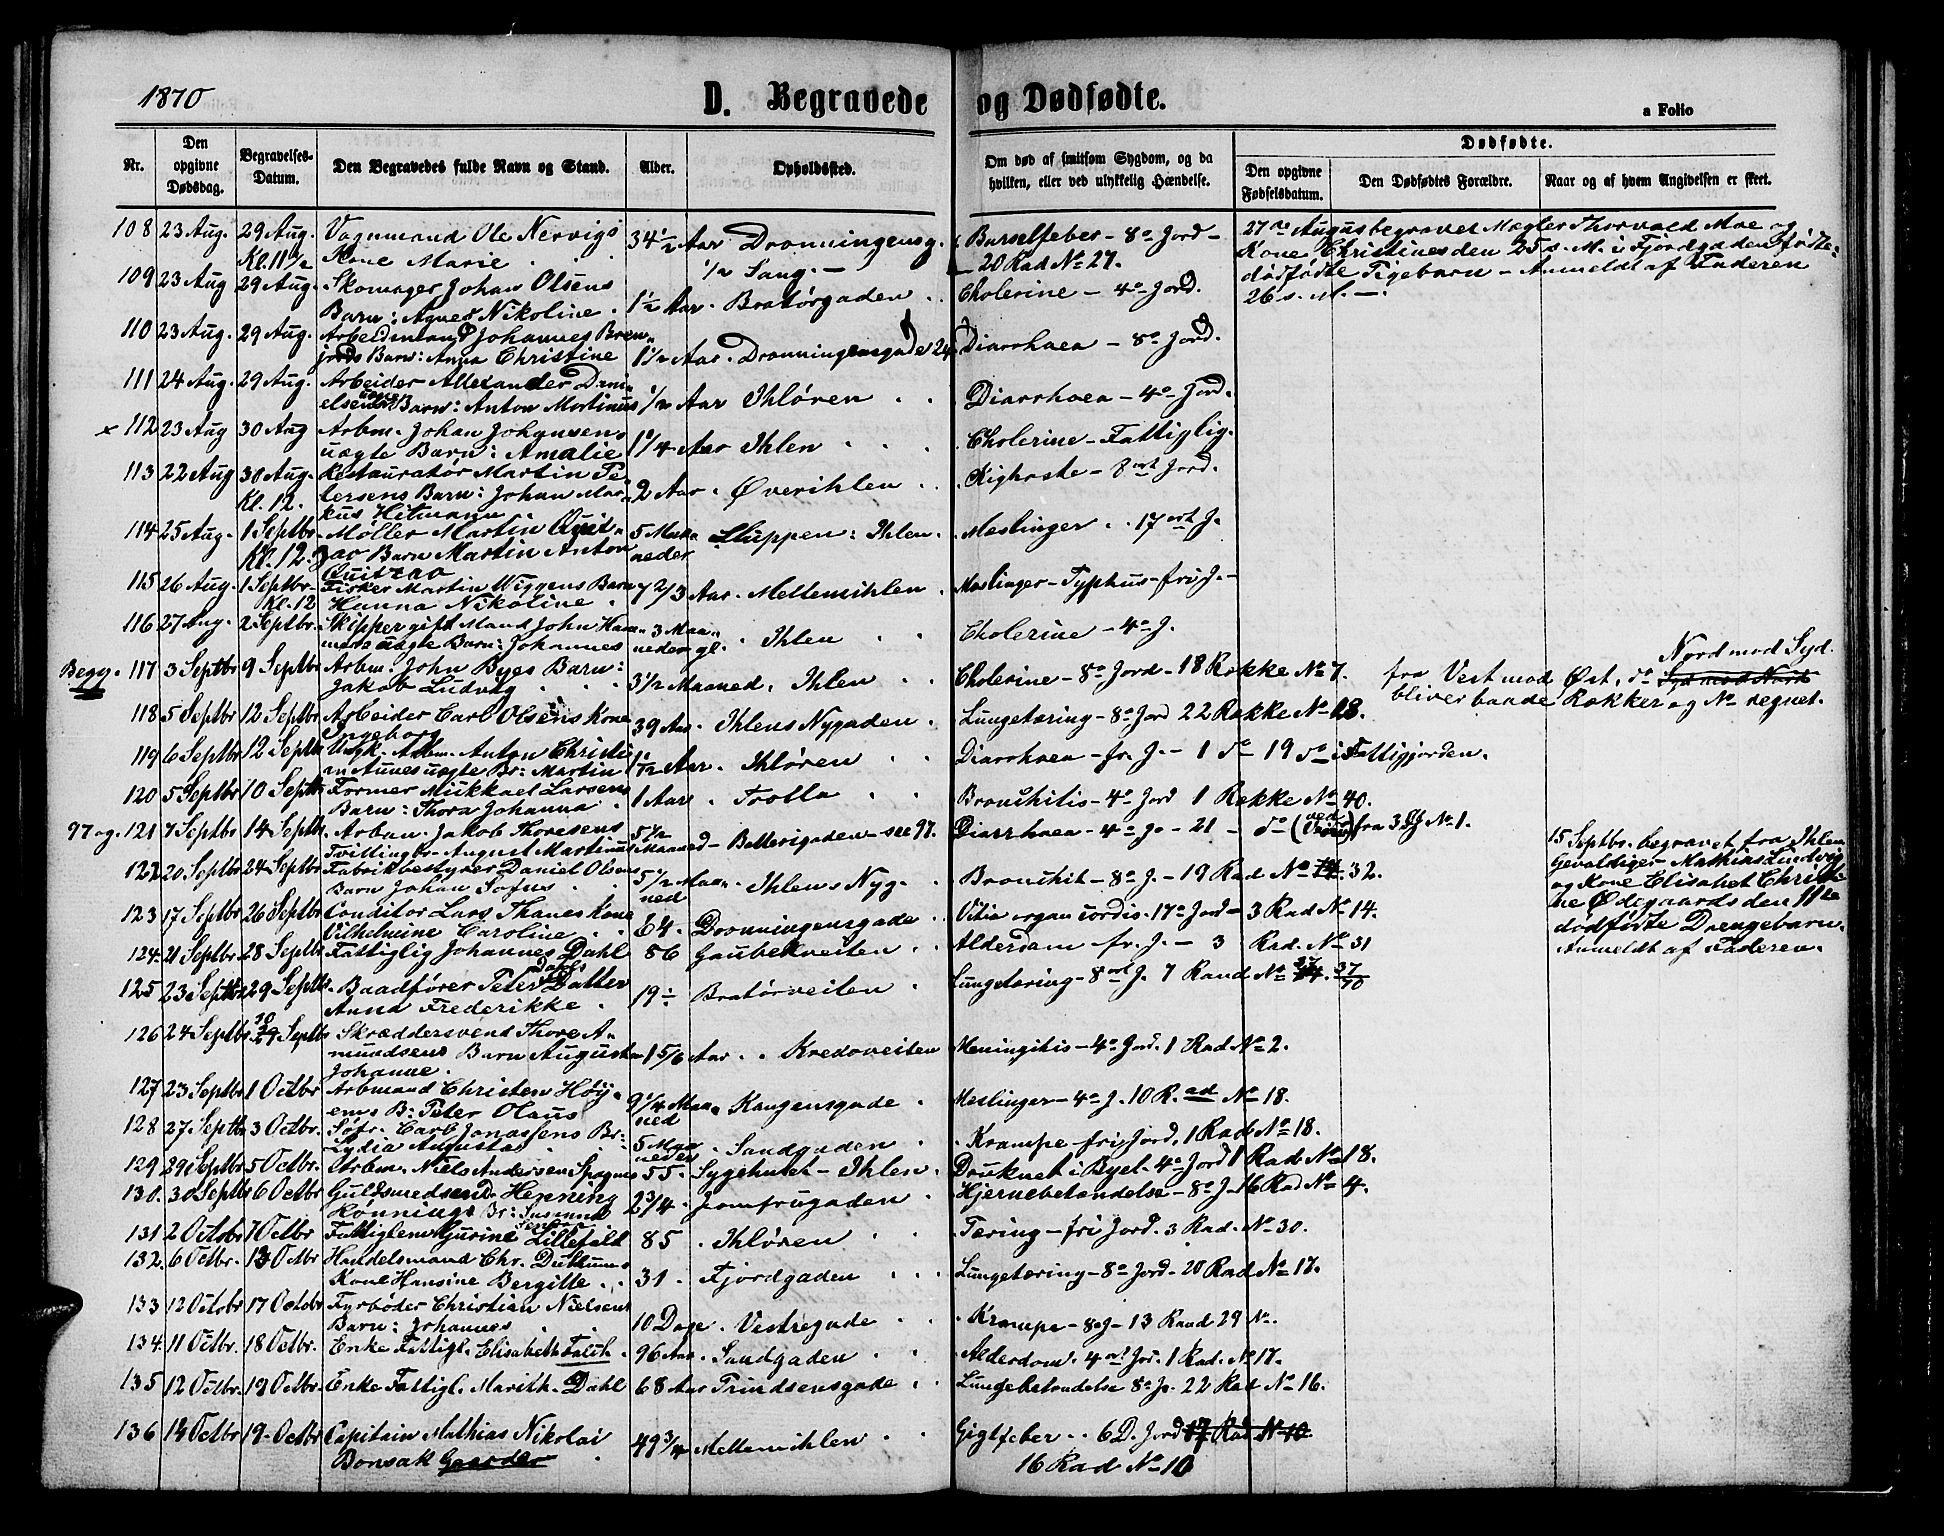 1870
D. Begravede og Dødfødte.
a Folio
Nr.
Den opgivne Dødsdag.
Begravelses-Datum.
Den Begravedes fulde Navn og Stand.
Alder.
Opholdssted.
Om død af smitsom Sygdom, og da hvilken, eller ved ulykkelig Hændelse.
Dødfødte.
Den opgivne Fødselsdatum.
Den Dødfødtes Forældre.
Naar og af hvem Angivelsen er skeet.
108 23 Aug. 29 Aug. Vognmand Ole Nervigs 34 1/2 Aar Dronningensg. Barselfeber - 8de Jord -
Kl. 11 1/2 Kone Marie 1/2 Sang. - 20 Rad No 27.
27de August begravet Mægler Thorvald Moe og
Kone Christines den 25 s. M. i Fjordgaden fødte
dødfødte Pigebarn - Anmeldt af Faderen
26 s. M. -
109 23 Aug 29 Aug. Skomager Johan Olsens
Barn: Agnes Nikoline 1 1/2 Aar. Bratørgaden Cholerine - 4de Jord.
110 23 Aug. 29 Aug. Arbeidsmand Johannes Bren-
jords Barn: Anna Christine 1 1/2 Aar. Dronningensgade 24 Diarrhoea - 8de Jord.
111 24 Aug. 29 Aug. Arbeider Allexander Dani-
elsens uægte Barn: Anton Martinus 1/2 Aar Ihløren Diarrhoea - 4de Jord.
x 112 23 Aug 30 Aug Arbm. Johan Johansens
uægte Barn: Amalie 1 1/4 Aar Ihlen Cholerine - Fattiglig.
113 22 Aug 30 Aug. Restauratør Martin Pe-
Kl. 12. tersens Barn: Johan Mar- 2 Aar. Øvreihlen Kighoste - 8de Jord.
kus Hitmann
114 25 Aug. 1 Septbr. Møller Martin Quit- 5 Maa- Sluppen: Ihlen. Meslinger 17 J.
Kl. 12. zao Barn Martin Anton neder
Quitzao
115 26 Aug. 1 Septbr. Fisker Martin Wiggens Barn 7 2/3 Aar. Mellemihlen Meslinger - Typhus - fri J. -
Kl. 12 Hanna Nikoline
116 27 Aug. 2 Septbr. Skipper gift Mand John Ham- 3 Maa- Ihlen Cholerine - 4de J.
mers uægte Barn: Johannes neder gl.
Begg. 117 3 Septbr 9 Septbr Arbm. John Byes Barn: 3 1/2 Maaned. Ihlen Cholerine - 8de Jord - 18 Række No 7.
Jakob Ludvig
Nord mod Syd.
fra Vest mod Øst, do Syd mod Nord
bliver baade Rækker og No regnet.
118 5 Septbr 12 Septbr Arbeider Carl Olsens Kone 39 Aar. Ihlens Nygaden. Lungetæring - 8de Jord 22 Række No 18.
Ingeborg
119 6 Septbr 12 Septbr Ungk. Arbm. Anton Christi-
an Aunes uægte Br: Martin 1 1/12 Aar. Ihløren Diarrhoea - fr. J. - 1 do 19 do i Fattigjorden.
120 5 Septbr 10 Septbr Former Mikkael Larsens
Barn: Thora Johanna 1 Aar. Trolla Bronchitis - 4de Jord 1 Række No 40.
97 og. 121 7 Septbr 14 Septbr. Arbm. Jakob Thoresens 5 1/2 Batterigaden - see 97. Diarrhoea - 4de Jo - 21 - do fra 3 No 1.
Tvillingbr. August Martinus Maaned
122 20. Septbr 24 Septbr Fabrikbestyrer Daniel Olsens 5 1/2 Maa- Ihlens Nyg. Bronchit - 8de J. - 19 Rad No 32.
Barn Johan Sofus ned
15 Septbr. begravet fra Ihlen
Gevaldiger Mathias Lundvig
og Kone Elisabet Christi-
ne Ødegaards den 11te
dødfødte Drengebarn.
Anmeldt af Faderen.
123 17 Septbr 26 Septbr Conditor Lars Thanes Kone 64. Dronningensgade Vitia organ cordis. 17de Jord - 3 Rad No 14.
Vilhelmine Caroline
124. 21 Septbr 28 Septbr Fattiglig Johannes Dahl 86 Gaubekveiten Alderdom - fr. J. - 3 Rad. No 31
125 23 Septbr 29 Septbr. Baadfører Peter Dahls Datter 19 Bratørveiten Lungetæring - 8de J. 7 Raad No 27/70
Anna Frederikke
126 24 Septbr. 30 29 Septbr Skræddersvend Thore A-
mundsens Barn Augusta 1 5/6 Aar Kredoveiten Meningitis - 4de Jord. 1 Rad No 2.
Johanne.
127 23 Septbr 1 Octbr Arbmand Christen Høy- 9 1/4 Maa- Kongensgade Meslinger - 4de J. 10 Rad No 18.
ems B: Peter Olaus ned
128 27 Septbr 3 Octbr. Søfr. Carl Jonassens Br: 5 Maa- Sandgaden Krampe - fri Jord. 1 Rad No 18.
Lydia Augusta neder
129 29 Septbr 5 Octbr. Arbm. Niels Andersen Spogns 55. Sygehuset - Ihlen. Druknet i Byel. 4de Jord 1 Rad No 18.
130. 30 Septbr 6 Octbr Guldsmedsvend Henning 2 3/4 Jomfrugaden Hjernebetændelse - 8de J. 16 Rad No 4.
Rønnings Br: Susanna
131 2 Octobr 7 Octbr Fattiglem Gurine Lillefald 85. Ihløren Tæring - fri Jord. 3 Rad. No 30.
132. 6 Octbr. 13 Octbr Handelsmand Chr. Duttums
Kone Hansine Bergitte 31. Fjordgaden Lungetæring - 8de Jord - 20 Rad No 17.
133 12 Octobr 17 Octobr Fyrbøder Christian Nielsens
Barn: Johannes 10 Dage. Vestregade Krampe - 8de J - 13 Raad 29 No.
134. 11 Octbr. 18 Octbr. Enke Fattigl. Elisabeth Falch. 96 Aar. Sandgaden Alderdom. 4 Jor. 1 Rad. No 17.
135 12 Octbr. 19 Octbr. Enke Fattigl. Marith. Dahl 68 Aar Prindsensgade Lungebetændelse 8de Jo. 22 Rad No 16.
136 14 Octbr 19 Octbr Capitain Mathias Nikolai 49 3/4 Mellemihlen Gigtfeber 6 D. Jord 17 Rad No 10
Bonsak Gaarder 16 Rad No 10